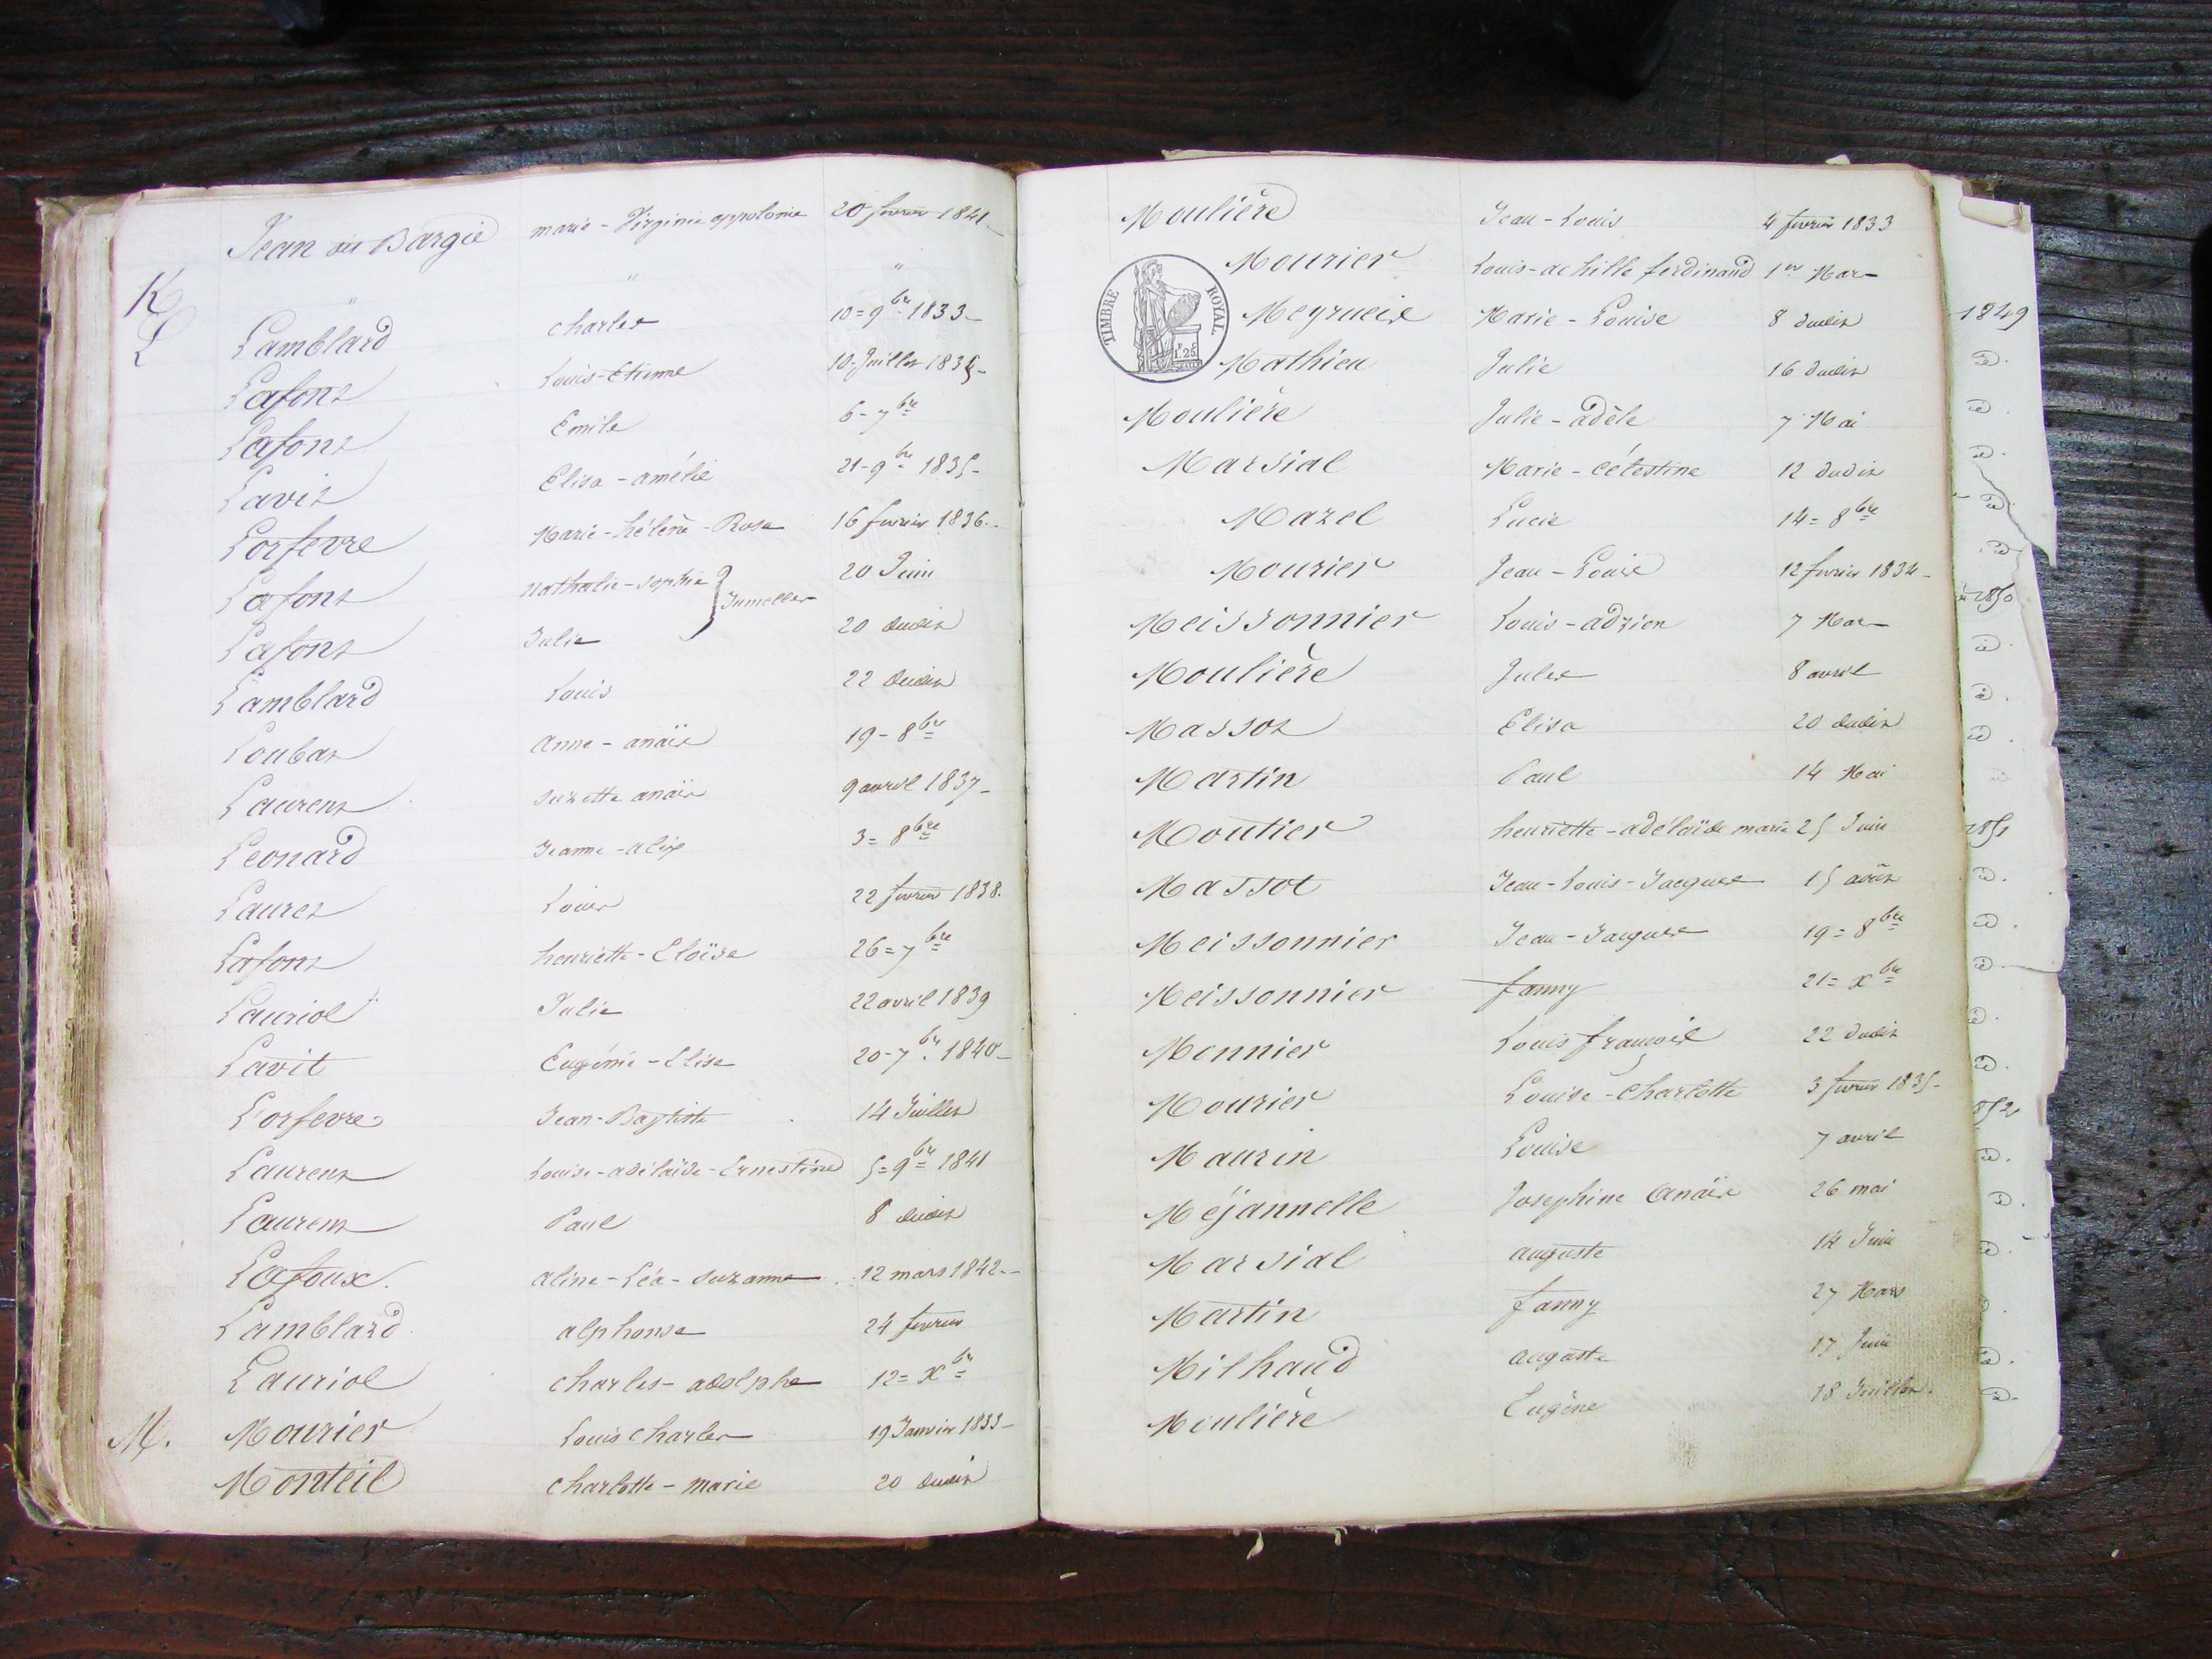 Jean dit Bargie marie - Virginie appolonie 20 fevrier 1841 -
K " " "
L Lamblard charles 10 = 9bre 1833 -
Lafont Louis - Etienne 10 - Juillet 1835 -
Lafont Emile 6 - 7bre
Lavit Elisa - amélie 21 - 9bre 1835 -
Lorfevre Marie - hélène - Rose 16 fevrier 1836 -
Lafont nathalie - sophie } Jumelles 20 Juin
Lafont Julie 20 dudit
Lamblard Louis 22 dudit
Loubat anne - anaïs 19 - 8bre
Laurent suzette anaïs 9 avril 1837 -
Leonard Jeanne - alix 3 = 8bre
Lauret Louis 22 fevrier 1838.
Lafont henriette - Eloïse 26 = 7bre
Lauriol Julie 22 avril 1839
Lavit Eugénie - Elise 20 - 7bre 1840 -
Lorfevre Jean - Baptiste 14 Juillet
Laurent Louise - adélaïde - Ernestine 5 = 9bre 1841
Laurent Paul 8 dudit
Lafoux. aline - Léa - suzanne 12 mars 1842 -
Lamblard alphonse 24 fevrier
Lauriol charles - adolphe 12 = Xbre
M. Mourier Louis charles 19 Janvier 1833 -
Monteil charlotte - marie 20 dudit
Moulière Jean - Louis 4 fevrier 1833
Mourier Louis - achille ferdinand 1er Mars
TIMBRE ROYAL
1.25
Meyrueix Marie - Louise 8 dudit
Mathieu Julie 16 dudit
Moulière Julie - adèle 7 Mai
Marsial Marie - Célestine 12 dudit
Mazel Lucie 14 = 8bre
Mourier Jean - Louis 12 fevrier 1834 -
Meissonnier Louis - adrien 7 Mars
Moulière Jules 8 avril
Massot Elisa 20 dudit
Martin Paul 14 Mai
Moutier henriette - adélaïde marie 25 Juin
Massot Jean - Louis - Jacques 15 août
Meissonnier Jean - Jacques 19 = 8bre
Meissonnier fanny 21 = Xbre
Monnier Louis françois 22 dudit
Mourier Louise - charlotte 3 fevrier 1835 -
Maurin Louise 7 avril
Méjannelle Josephine anaïs 26 mai
Marsial auguste 14 Juin
Martin fanny 27 Mars
Milhaud auguste 17 Juin
Moulière Eugène 18 Juillet
1849
1850
1851